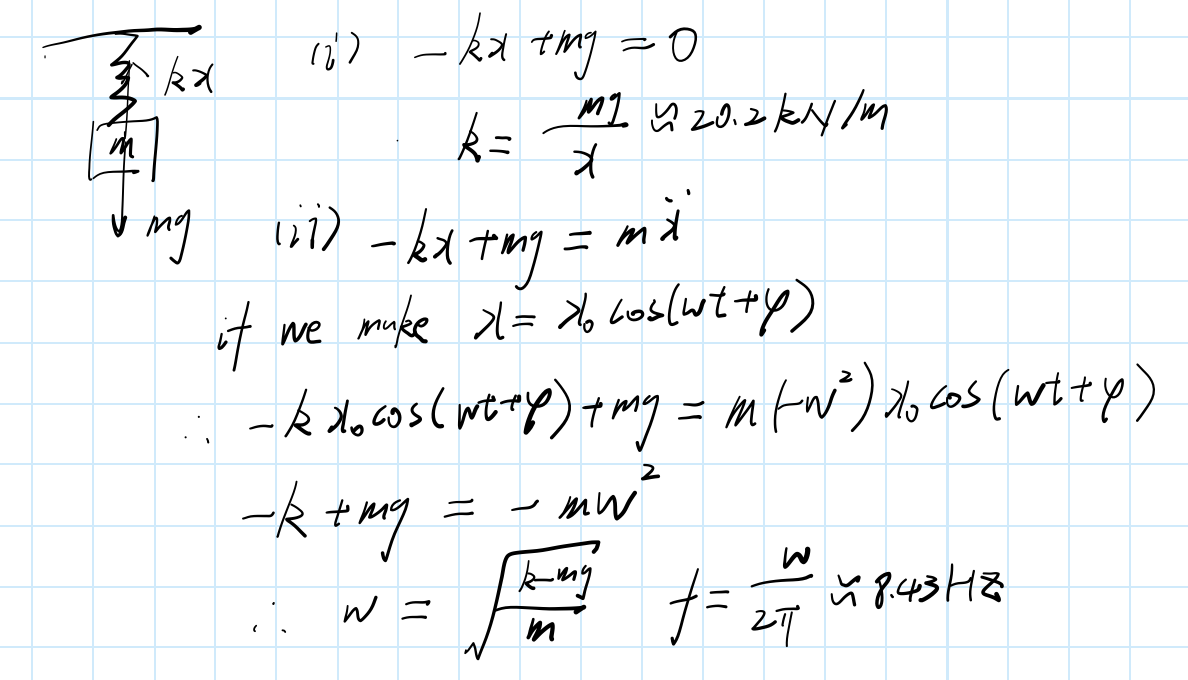 (i) -kx + mg = 0
kx
k = mg/x ≈ 20.2 kN/m
m
mg
(ii) -kx + mg = mẍ
if we make x = x₀ cos(wt+φ)
∴ -k x₀ cos(wt+φ) + mg = m(-w²) x₀ cos(wt+φ)
-k + mg = -mw²
∴ w = √((k-mg)/m) f = w/2π ≈ 8.43 HZ